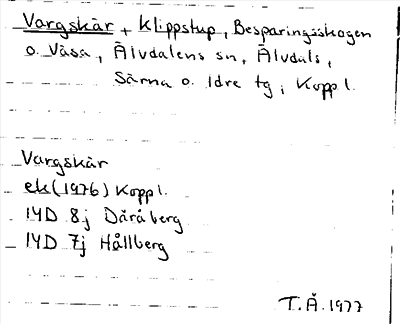 Vargskär + klippstup, Besparingsskogen
o. Våsa, Älvdalens sn, Älvdals,
Särna o. Idre tg, Kopp l.
Vargskär
ek (1976) Kopp l.
14D 8j Dåråberg
14D 7j Hållberg
T.Å. 1977